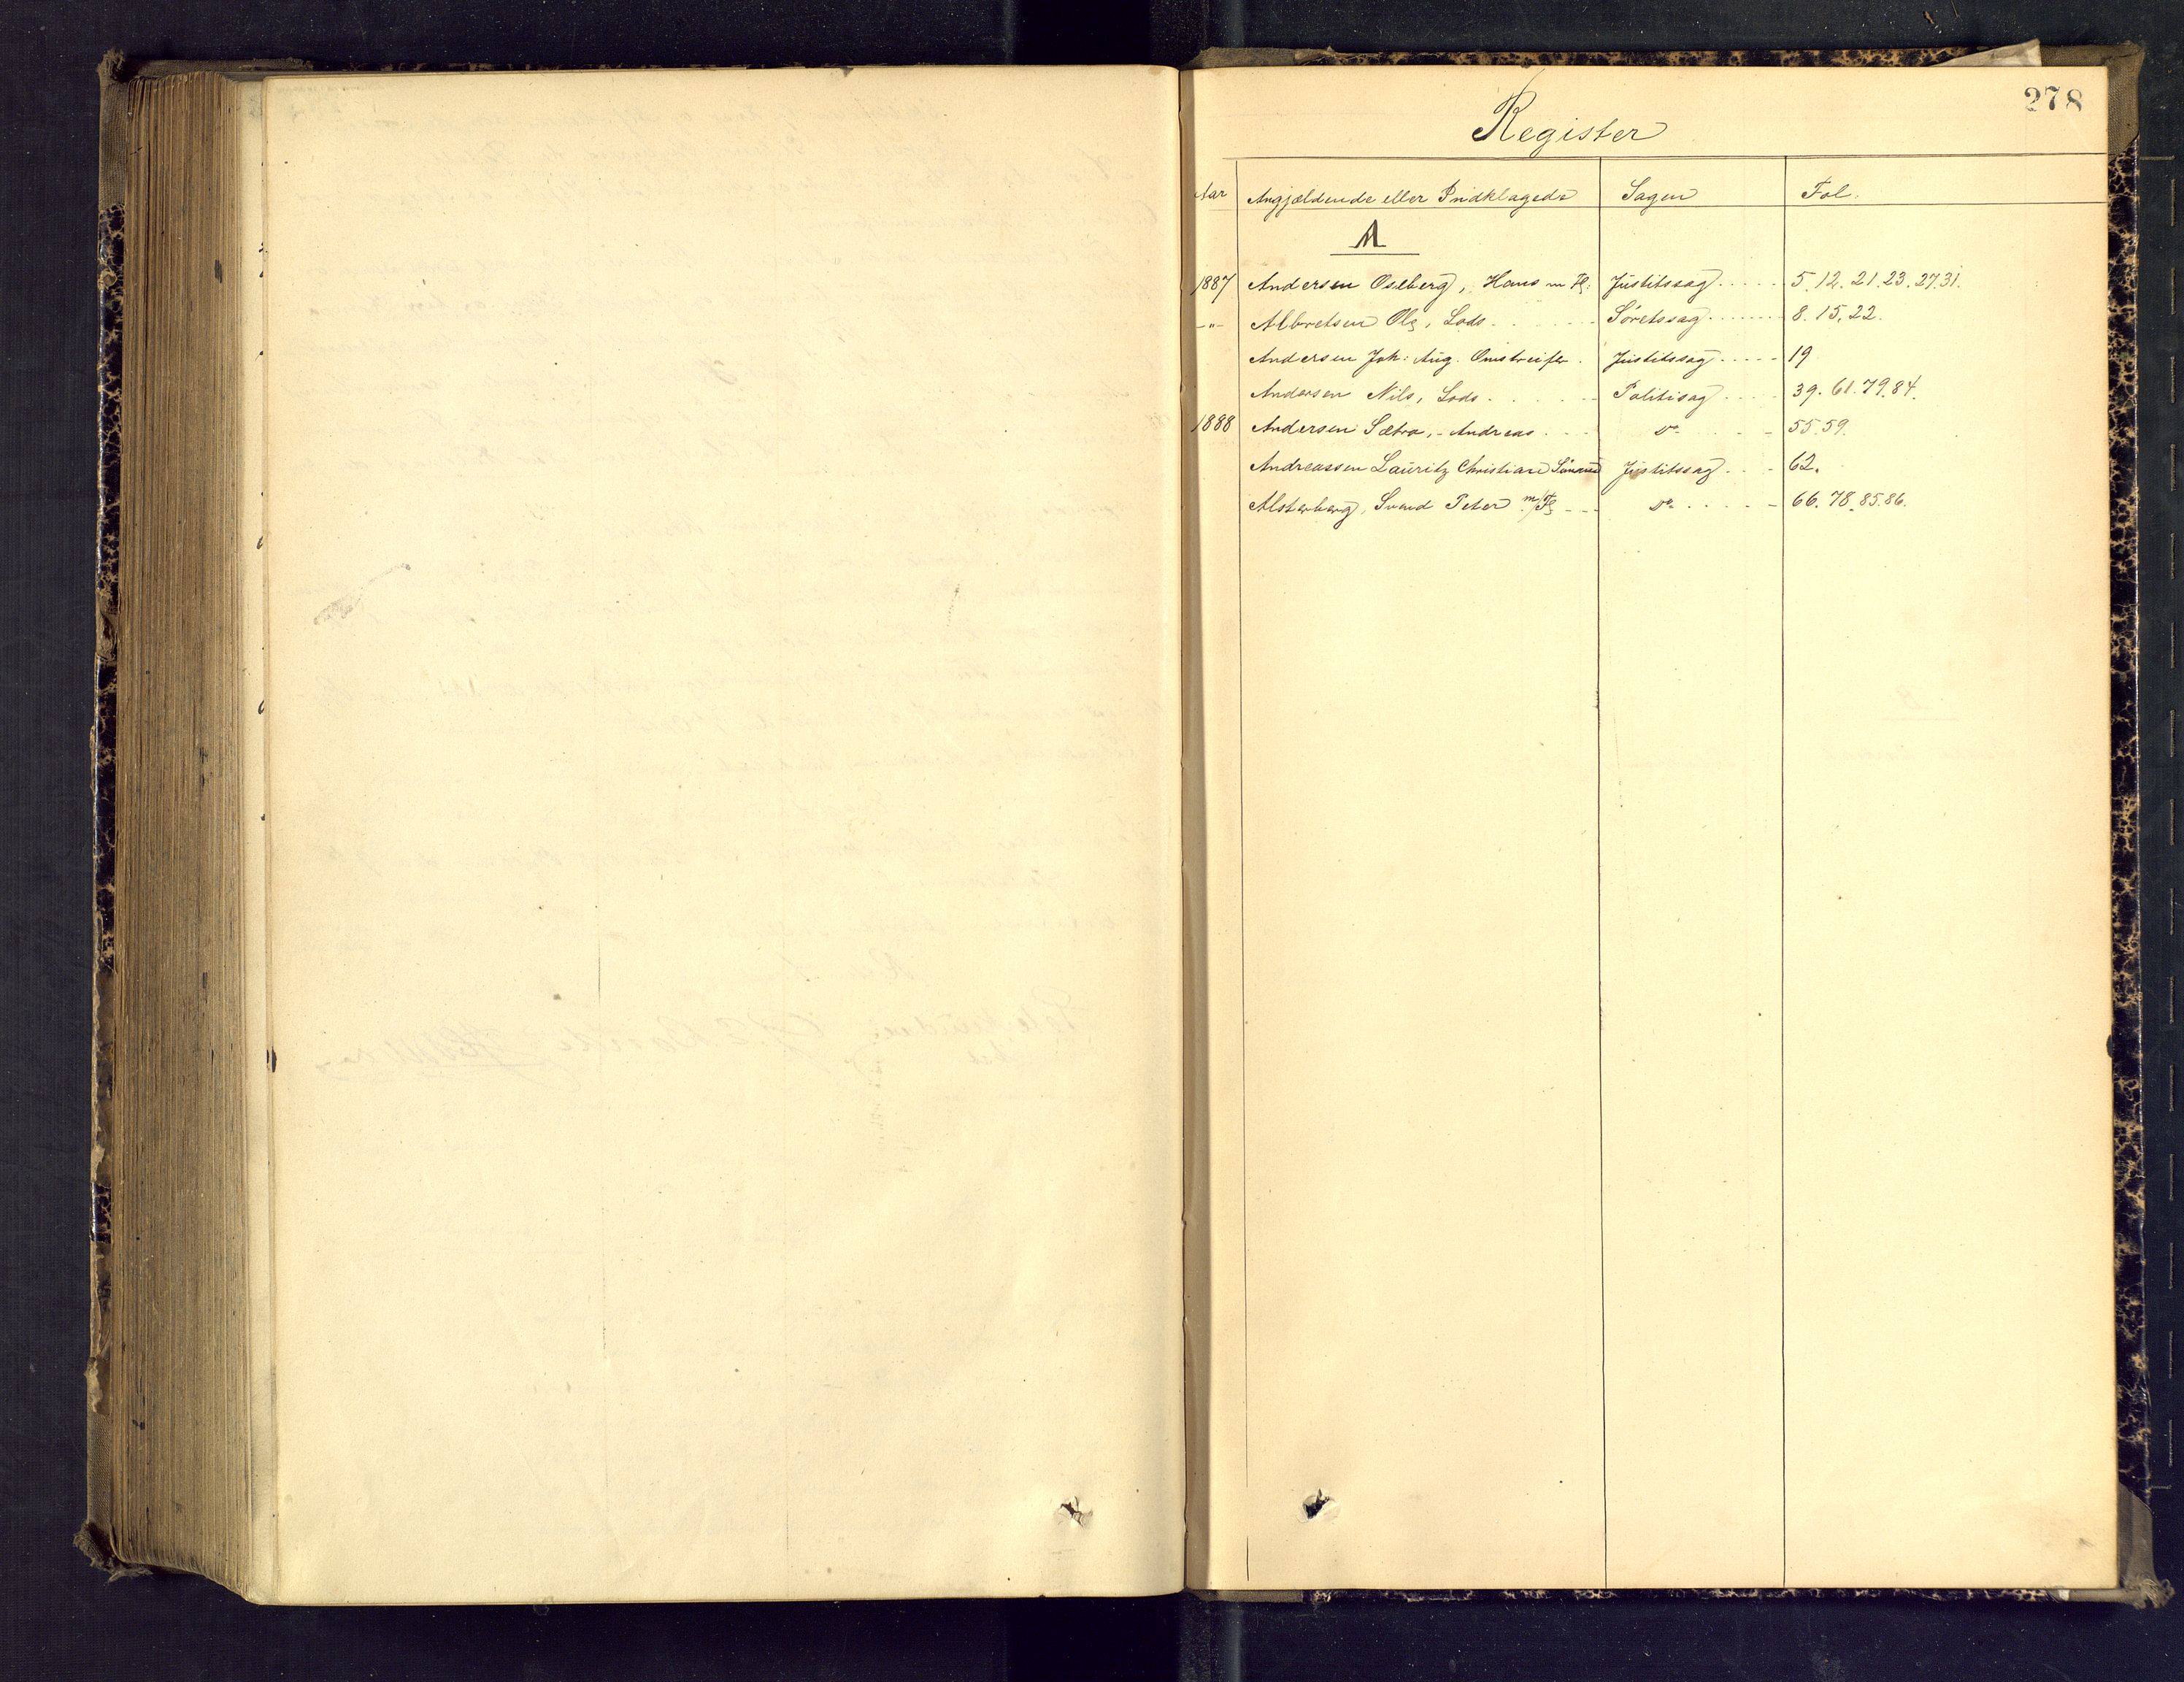 278
Register
Aar Angjældende eller Indklagede Sagen Fol.
A
1887 Andersen Oseberg, Hans m Fl: Justitssag 5. 12. 21. 23. 27. 31.
-"- Albretsen Ole, Lods Söretssag 8. 15. 22.
Andersen Joh: Aug. Omstreifer Justitssag 19
Andersen Nils, Lods Politisag 39. 61. 79. 84.
1888 Andersen Sætra, Andreas Do 55. 59.
Andreassen Lauritz Christian Sömand Justitssag 62.
Alsterberg, Svend Peter m/Fl Do 66. 78. 85. 86.